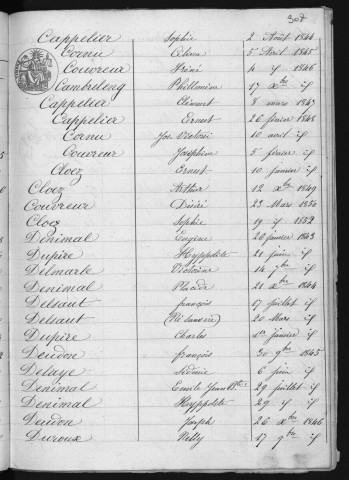 307
Cappelier Sophie 2 Août 1844
Cornu Elina 5 Avril 1845
Couvreur Iréné 4 if 1846
Cambreleng Philomène 17 Xbre if
Cappelia Clément 8 mars 1847
Cappelia Ernest 26 février 1848
Cornu Jos. Victoire 10 avril if
Couvreur Joséphine 5 février if
Cloez Ernest 10 février if
Cloez Arthur 12 Xbre 1849
Couvreur Désiré 23 Mars 1850
Cloez Sophie 19 if 1852
Denimal Eugène 26 janvier 1843
Dupire Hyppolite 21 juin if
Delmarle Victoire 14 7bre if
Denimal Placide 21 Xbre 1844
Delsaut françois 17 juillet if
Delsaut 20 Mars if
Dupire Charles 1er janvier if
Deudon françois 30 9bre 1845
Delaye Sidonie 6 juin if
Denimal Emile Jean Bte 29 juillet if
Denimal Hyppolite 29 if if
Deudon Joseph 26 Xbre 1846
Duroux Nelly 17 9bre if